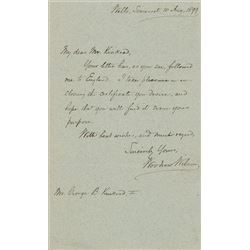 Wells, Somerset 10 Aug, 1899
My dear Mr. Kinkead,
Your letter has, as you see, followed
me to England. I take pleasure in en-
closing the certificate you desire, and
hope that you will find it serve your
purpose.
With best wishes, and much regard,
Sincerely Yours,
Woodrow Wilson
Mr. George B. Kinkead